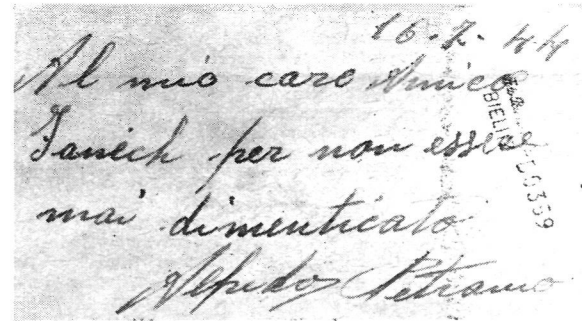 16.7.44
Al mio caro Amico
Janich per non essere
mai dimenticato
Alfredo Petranio
BIELI
D0359